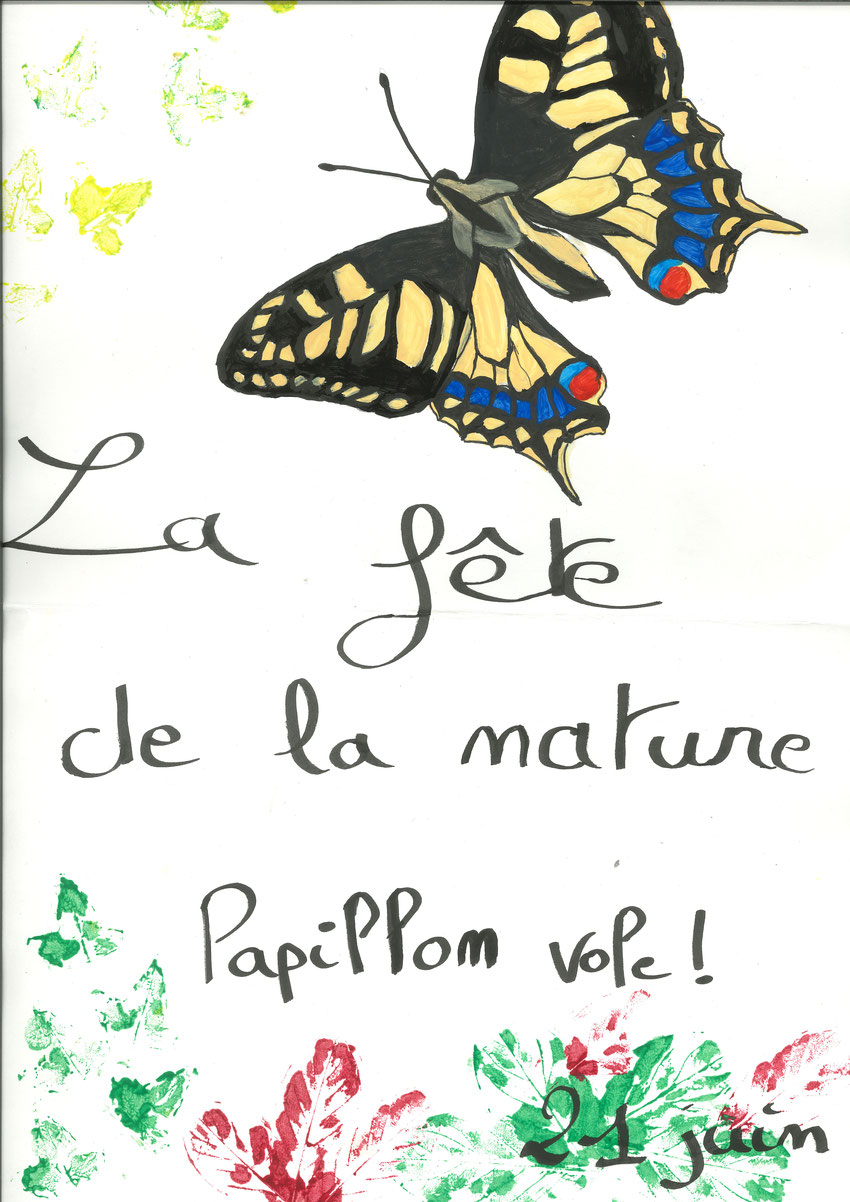 La fête
de la nature
Papillon vole !
21 juin